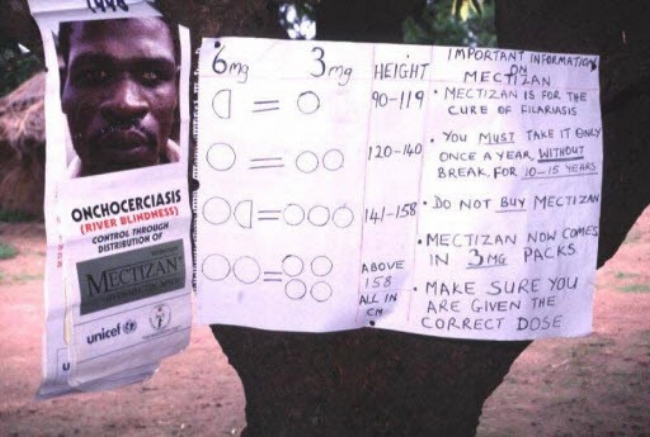 1998
ONCHOCERCIASIS
(RIVER BLINDNESS)
CONTROL THROUGH
DISTRIBUTION OF
MECTIZAN
unicef
6mg = 3mg
HEIGHT
90-119
120-140
141-158
ABOVE
158
ALL IN
CM
IMPORTANT INFORMATION
ON
MECTIZAN
• MECTIZAN IS FOR THE
CURE OF FILARIASIS
• YOU MUST TAKE IT ONLY
ONCE A YEAR, WITHOUT
BREAK, FOR 10-15 YEARS
• DO NOT BUY MECTIZAN
• MECTIZAN NOW COMES
IN 3MG PACKS
• MAKE SURE YOU
ARE GIVEN THE
CORRECT DOSE